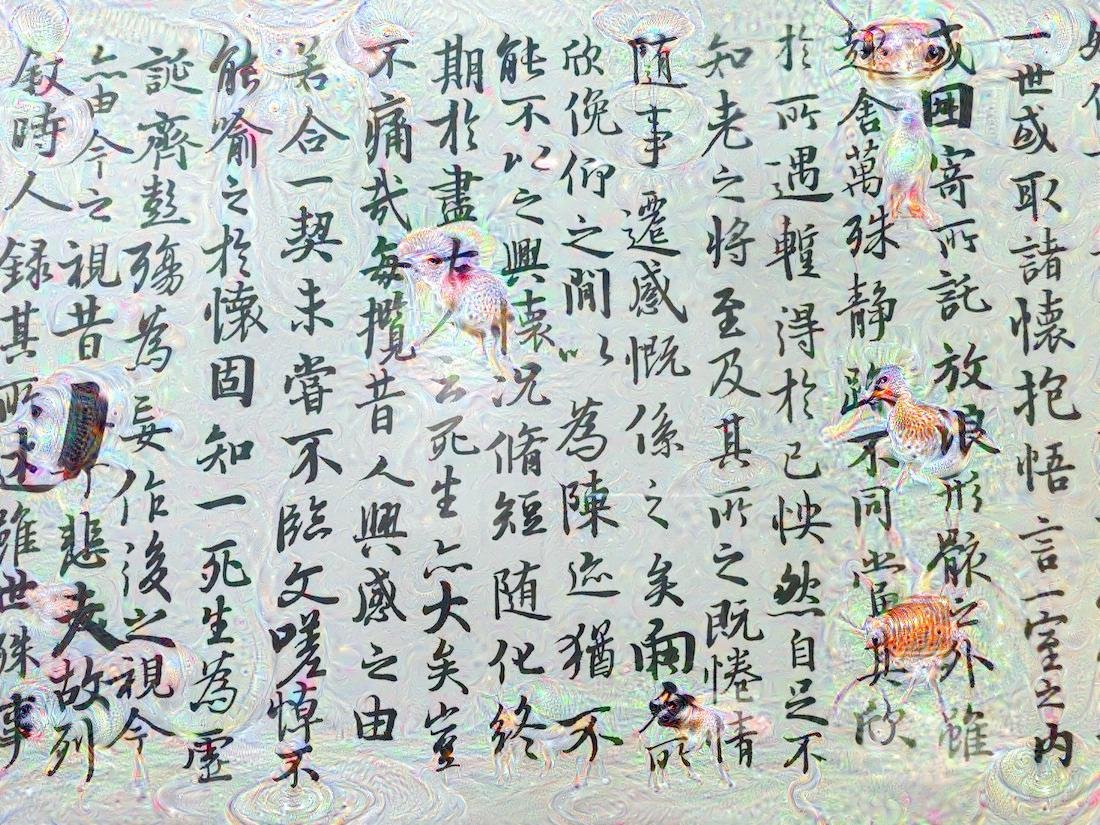 一世或取諸懷抱悟言一室之內
或因寄所託放浪形骸之外雖
舍萬殊静躁不同當其欣
於所遇蹔得於己怏然自足不
知老之将至及其所之既惓情
随事遷感慨係之矣向之所
欣俛仰之間以為陳迹猶不
能不以之興懷況脩短随化終
期於盡古云死生亦大矣豈
不痛哉每攬昔人興感之由
若合一契未嘗不臨文嗟悼不
能喻之於懷固知一死生為虛
誕齊彭殤為妄作後之視今
亦由今之視昔悲夫故列
叙時人録其所述雖世殊事